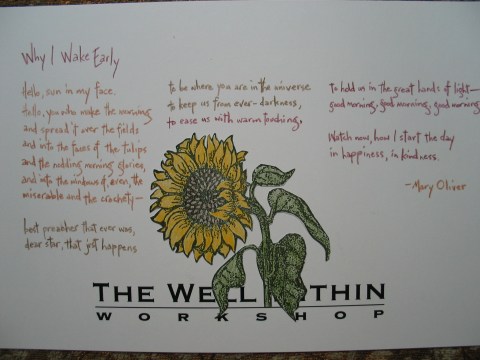 Why I Wake Early
Hello, sun in my face.
Hello, you who make the morning
and spread it over the fields
and into the faces of the tulips
and the nodding morning glories,
and into the windows of, even, the
miserable and the crochety—
best preacher that ever was,
dear star, that just happens
to be where you are in the universe
to keep us from ever-darkness,
to ease us with warm touching,
to hold us in the great hands of light—
good morning, good morning, good morning.
Watch, now, how I start the day
in happiness, in kindness.
—Mary Oliver
THE WELL WITHIN
WORKSHOP